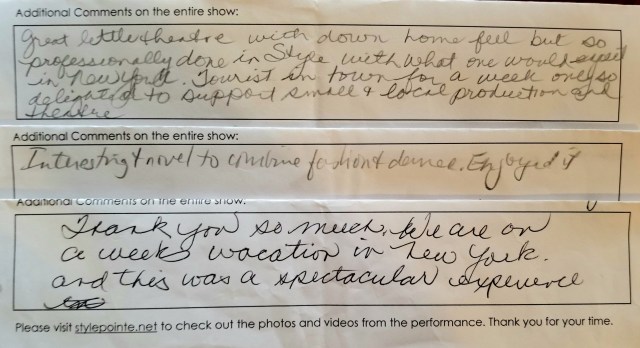 Additional Comments on the entire show:
Great little theatre with down home feel but so
professionally done in Style with what one would expect
in New York. Tourist in town for a week only so
delighted to support small & local production and
theatre
Additional Comments on the entire show:
Interesting & novel to combine fashion & dance. Enjoyed it
Additional Comments on the entire show:
Thank you so much. We are on
a weeks vacation in New York.
and this was a spectacular experience
Please visit stylepointe.net to check out the photos and videos from the performance. Thank you for your time.